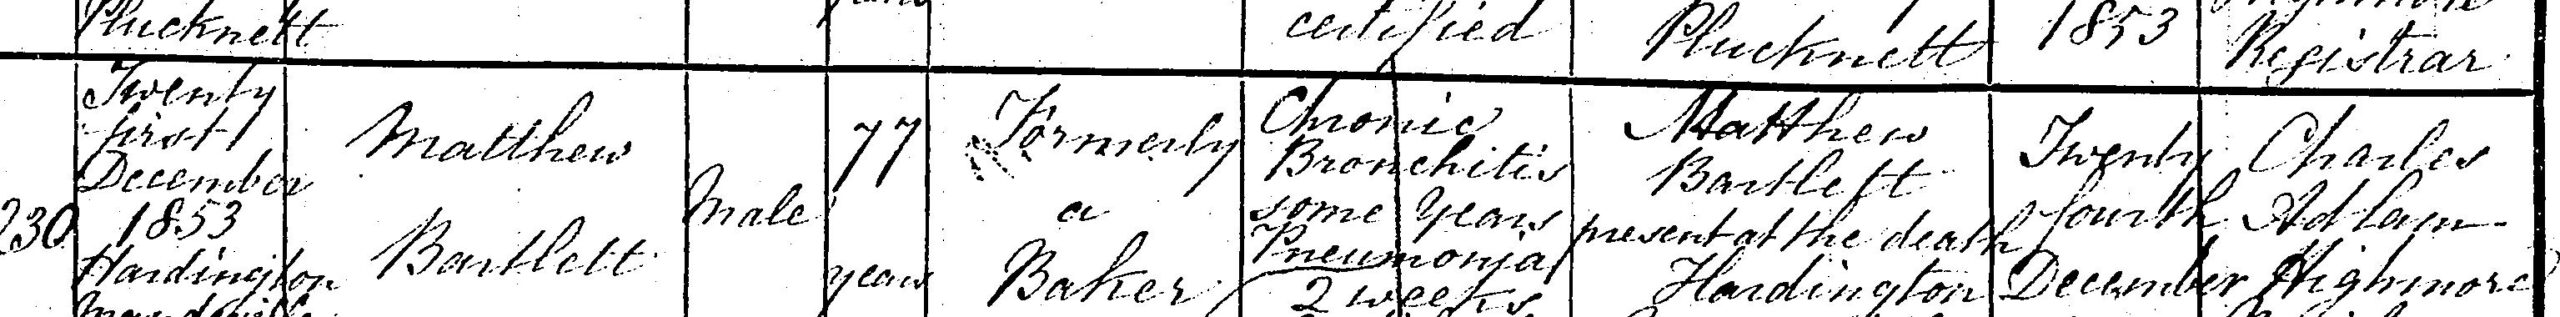 Plucknett
certified
Plucknett
1853
Registrar
230
Twenty
first
December
1853
Hardington
Mandeville
Matthew
Bartlett
Male
77
years
Formerly
a
Baker
Chronic
Bronchitis
some years
Pneumonia
2 weeks
Matthew
Bartlett
present at the death
Hardington
Twenty
fourth
December
Charles
Adlam
Highmore